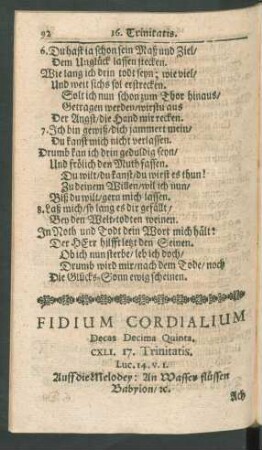 92 16. Trinitatis.
6. Du hast ja schon sein Maß und Ziel/
Dem Unglück lassen stecken.
Wie lang ich dein todt seyn; wie viel/
Und weit sichs sol erstrecken.
Solt ich nun schon zum Thor hinaus/
Getragen werden/ wirstu aus
Der Angst/ die Hand mir recken.
7. Ich bin gewiß/ dich jammert mein/
Du kanst mich nicht verlassen.
Drumb kan ich drin gedultig seyn/
Und frölich den Muth fassen.
Du wilt/ du kanst/ du wirst es thun!
Zu deinem Willen/ will ich nun/
Biß du wilt/ gern mich lassen.
8. Laß mich/ so lang es dir gefällt/
Bey den Welt-todten weinen.
In Noth und Todt dein Wort mich hält:
Der HErr hilfft letzt den Seinen.
Ob ich nun sterbe/ leb ich doch/
Drumb wird mir/ nach dem Tode/ noch
Die Glücks-Sonn ewig scheinen.
FIDIUM CORDIALIUM
Decas Decima Quinta.
CXLI. 17. Trinitatis.
Luc. 14. v. 1.
Auff die Melodey: An Wasser flüssen
Babylon/ ꝛc.
Ach